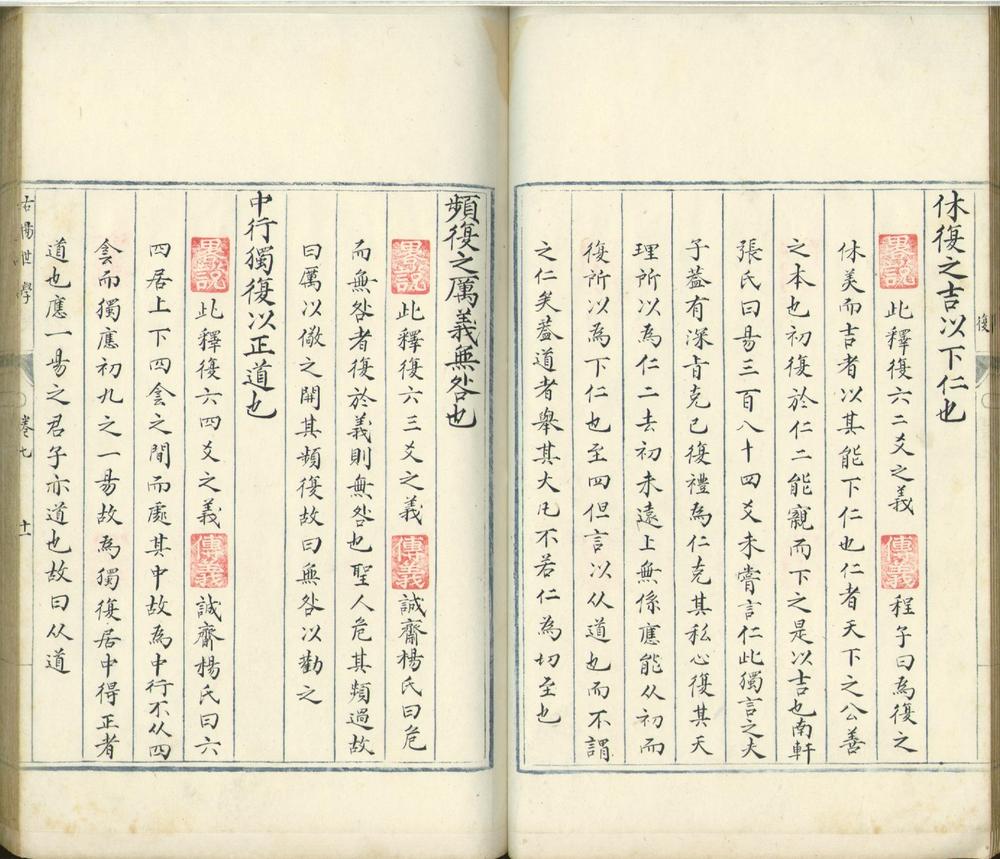 復
休復之吉以下仁也
畧說 此釋復六二爻之義 傳義 程子曰為復之
休美而吉者以其能下仁也仁者天下之公善
之本也初復於仁二能親而下之是以吉也南軒
張氏曰易三百八十四爻未嘗言仁此獨言之夫
子葢有深㫖克己復禮為仁克其私心復其天
理所以為仁二去初未遠上無係應能从初而
復所以為下仁也至四但言以从道也而不謂
之仁矣葢道者舉其大凡不若仁為切至也
頻復之厲義無咎也
畧說 此釋復六三爻之義 傳義 誠齋楊氏曰危
而無咎者復於義則無咎也聖人危其頻過故
曰厲以儆之開其頻復故曰無咎以勸之
中行獨復以正道也
畧說 此釋復六四爻之義 傳義 誠齋楊氏曰六
四居上下四侌之間而處其中故為中行不从四
侌而獨應初九之一昜故為獨復居中得正者
道也應一昜之君子亦道也故曰从道
古易世學 卷七 十一